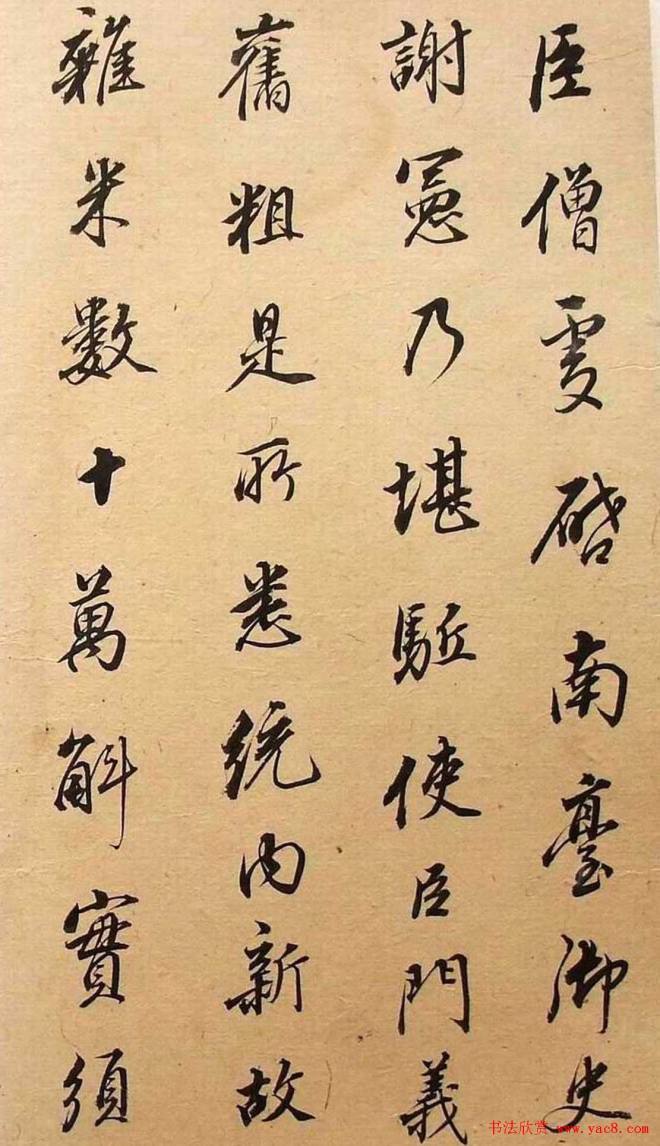 臣僧虔啓南臺御史
謝憲乃堪駈使臣門義
舊粗是所悉統内新故
雜米數十萬斛實須
书法欣赏 www.yac8.com